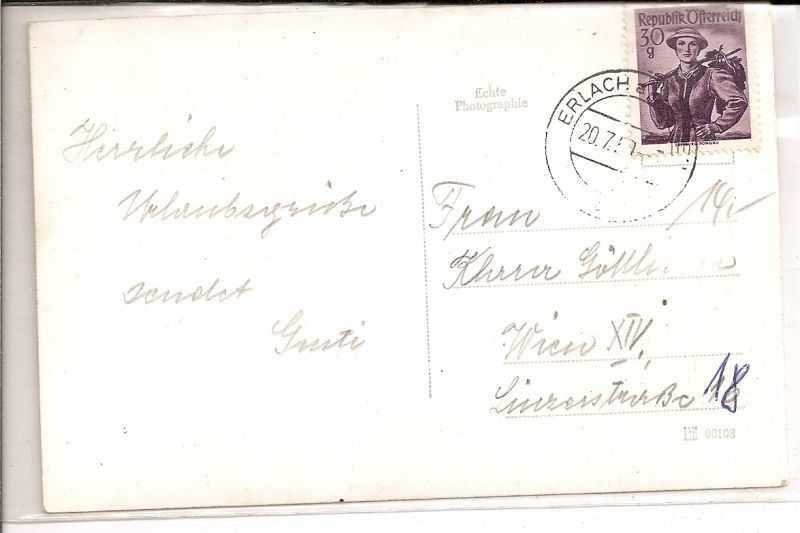 Herrliche
Urlaubsgrüße
sendet
Gusti
Echte
Photographie
Republik Österreich
30
g
ERLACH a
20.7.5
Frau
14,-
Klara
Wien XIV,
Linzerstraße 18
96108